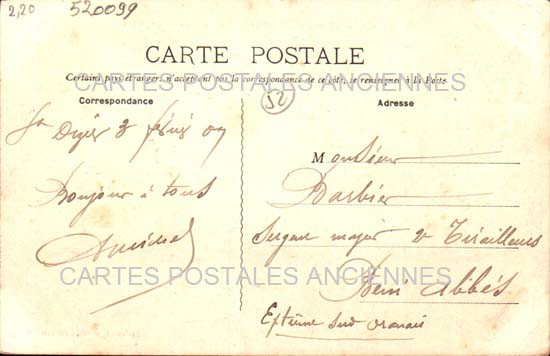 2,20 520099
CARTE POSTALE
Certains pays étrangers n'acceptent pas la correspondance de ce côté, se renseigner à la Poste
CARTES POSTALES ANCIENNES
Correspondance
52
Adresse
St Dizier 3 févri 09
Bonjour à tous
Monsieur
Barbier
Sergent major 2e Tirailleurs
Beni Abbés
Extrême Sud Oranais
CARTES POSTALES ANCIENNES